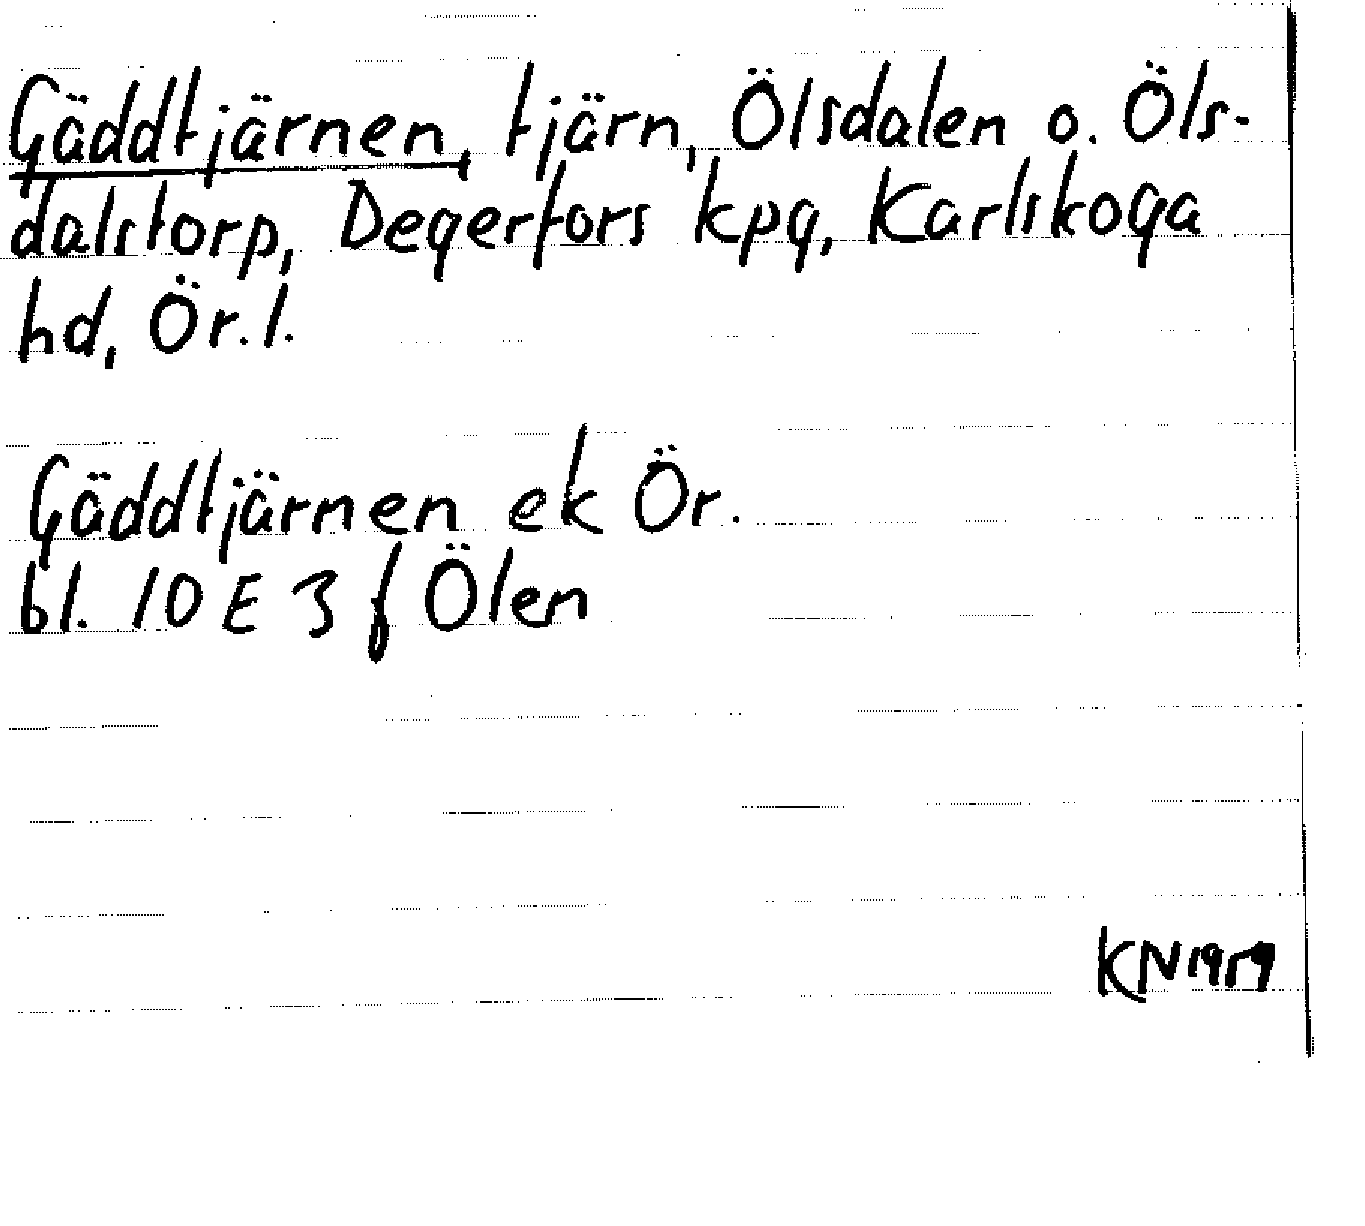 Gäddtjärnen, tjärn, Ölsdalen o. Öls-
dalstorp, Degerfors kpg, Karlskoga
hd, Ör.l.
Gäddtjärnen ek Ör.
bl. 10 E 3 f Ölen
KN